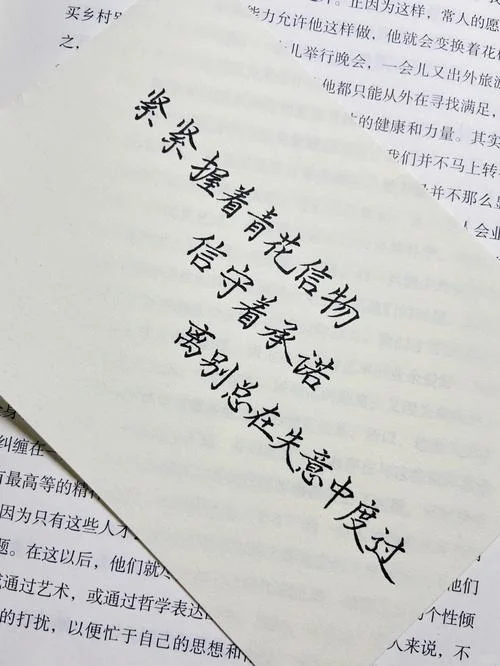 买乡村别
正因为这样，常人的愿
能力允许他这样做，他就会变换着花
之，
儿举行晚会，一会儿又出外旅游
他都只能从外在寻找满足，
的健康和力量。其实
我们并不马上转
并不那么
人会业
紧紧握着青花信物
信守着承诺
离别总在失意中度过
身
纠缠在一
有最高等的精
因为只有这些人才
题。在这以后，他们就
或通过艺术，或通过哲学表达
的打扰，以便忙于自己的思想和
他们
的个性倾
人来说，不